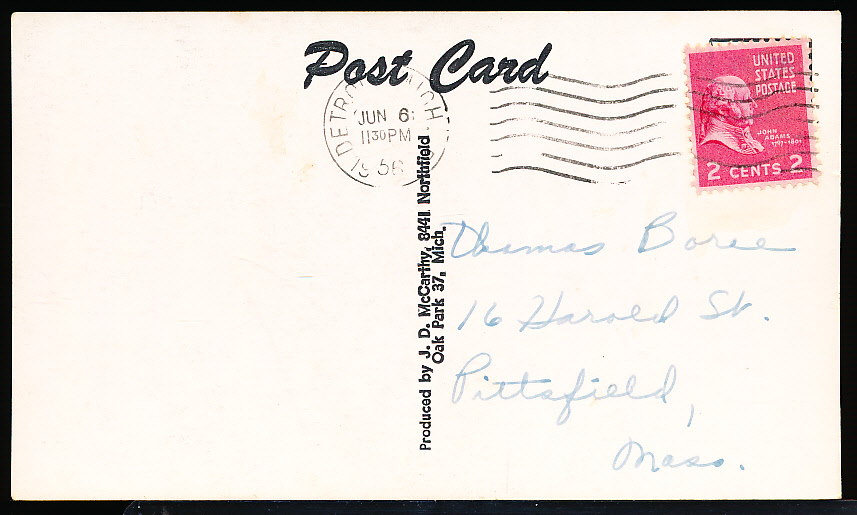 Post Card
DETROIT MICH
JUN 6
11 30 PM
1956
UNITED
STATES
POSTAGE
JOHN
ADAMS
1797-1801
2 CENTS 2
Produced by J. D. McCarthy, 8441 Northfield
Oak Park 37, Mich.
Thomas Boree
16 Harold St.
Pittsfield,
Mass.